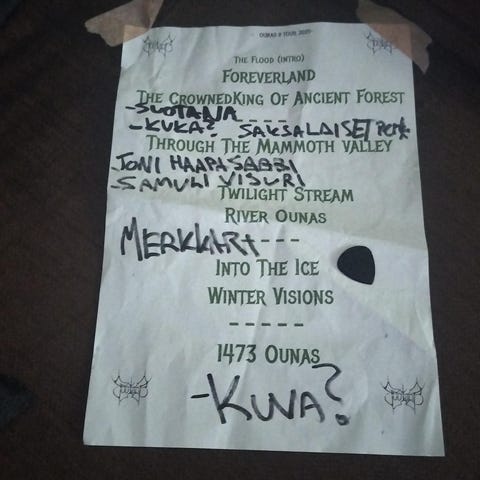 OUNAS II TOUR 2025
THE FLOOD (INTRO)
FOREVERLAND
THE CROWNEDKING OF ANCIENT FOREST
-SUOTANA
----
-KUKA? SAKSALAISET
THROUGH THE MAMMOTH VALLEY
JONI HAAPASAARI
-SAMULI VISURI
TWILIGHT STREAM
RIVER OUNAS
----
MERKKARI
INTO THE ICE
WINTER VISIONS
-----
1473 OUNAS
-KUVA?